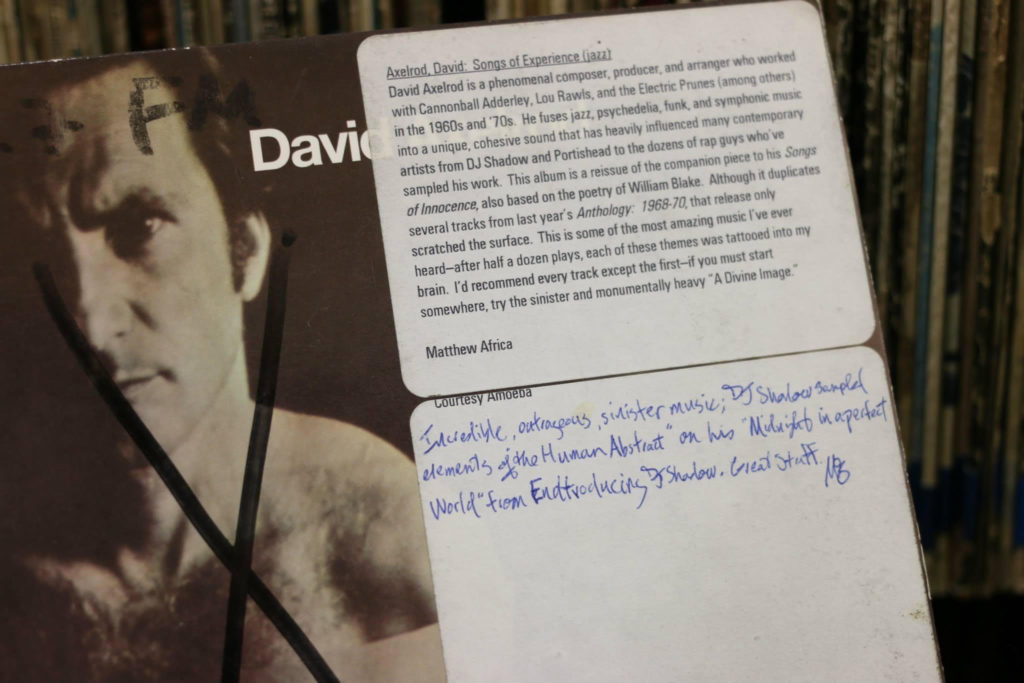 FM
David
Axelrod, David: Songs of Experience (jazz)
David Axelrod is a phenomenal composer, producer, and arranger who worked
with Cannonball Adderley, Lou Rawls, and the Electric Prunes (among others)
in the 1960s and '70s. He fuses jazz, psychedelia, funk, and symphonic music
into a unique, cohesive sound that has heavily influenced many contemporary
artists from DJ Shadow and Portishead to the dozens of rap guys who've
sampled his work. This album is a reissue of the companion piece to his Songs
of Innocence, also based on the poetry of William Blake. Although it duplicates
several tracks from last year's Anthology: 1968-70, that release only
scratched the surface. This is some of the most amazing music I've ever
heard—after half a dozen plays, each of these themes was tattooed into my
brain. I'd recommend every track except the first—if you must start
somewhere, try the sinister and monumentally heavy "A Divine Image."
Matthew Africa
Courtesy Amoeba
Incredible, outrageous, sinister music; DJ Shadow sampled
elements of the Human Abstract" on his "Midnight in a perfect
World" from Endtroducing DJ Shadow. Great Stuff.